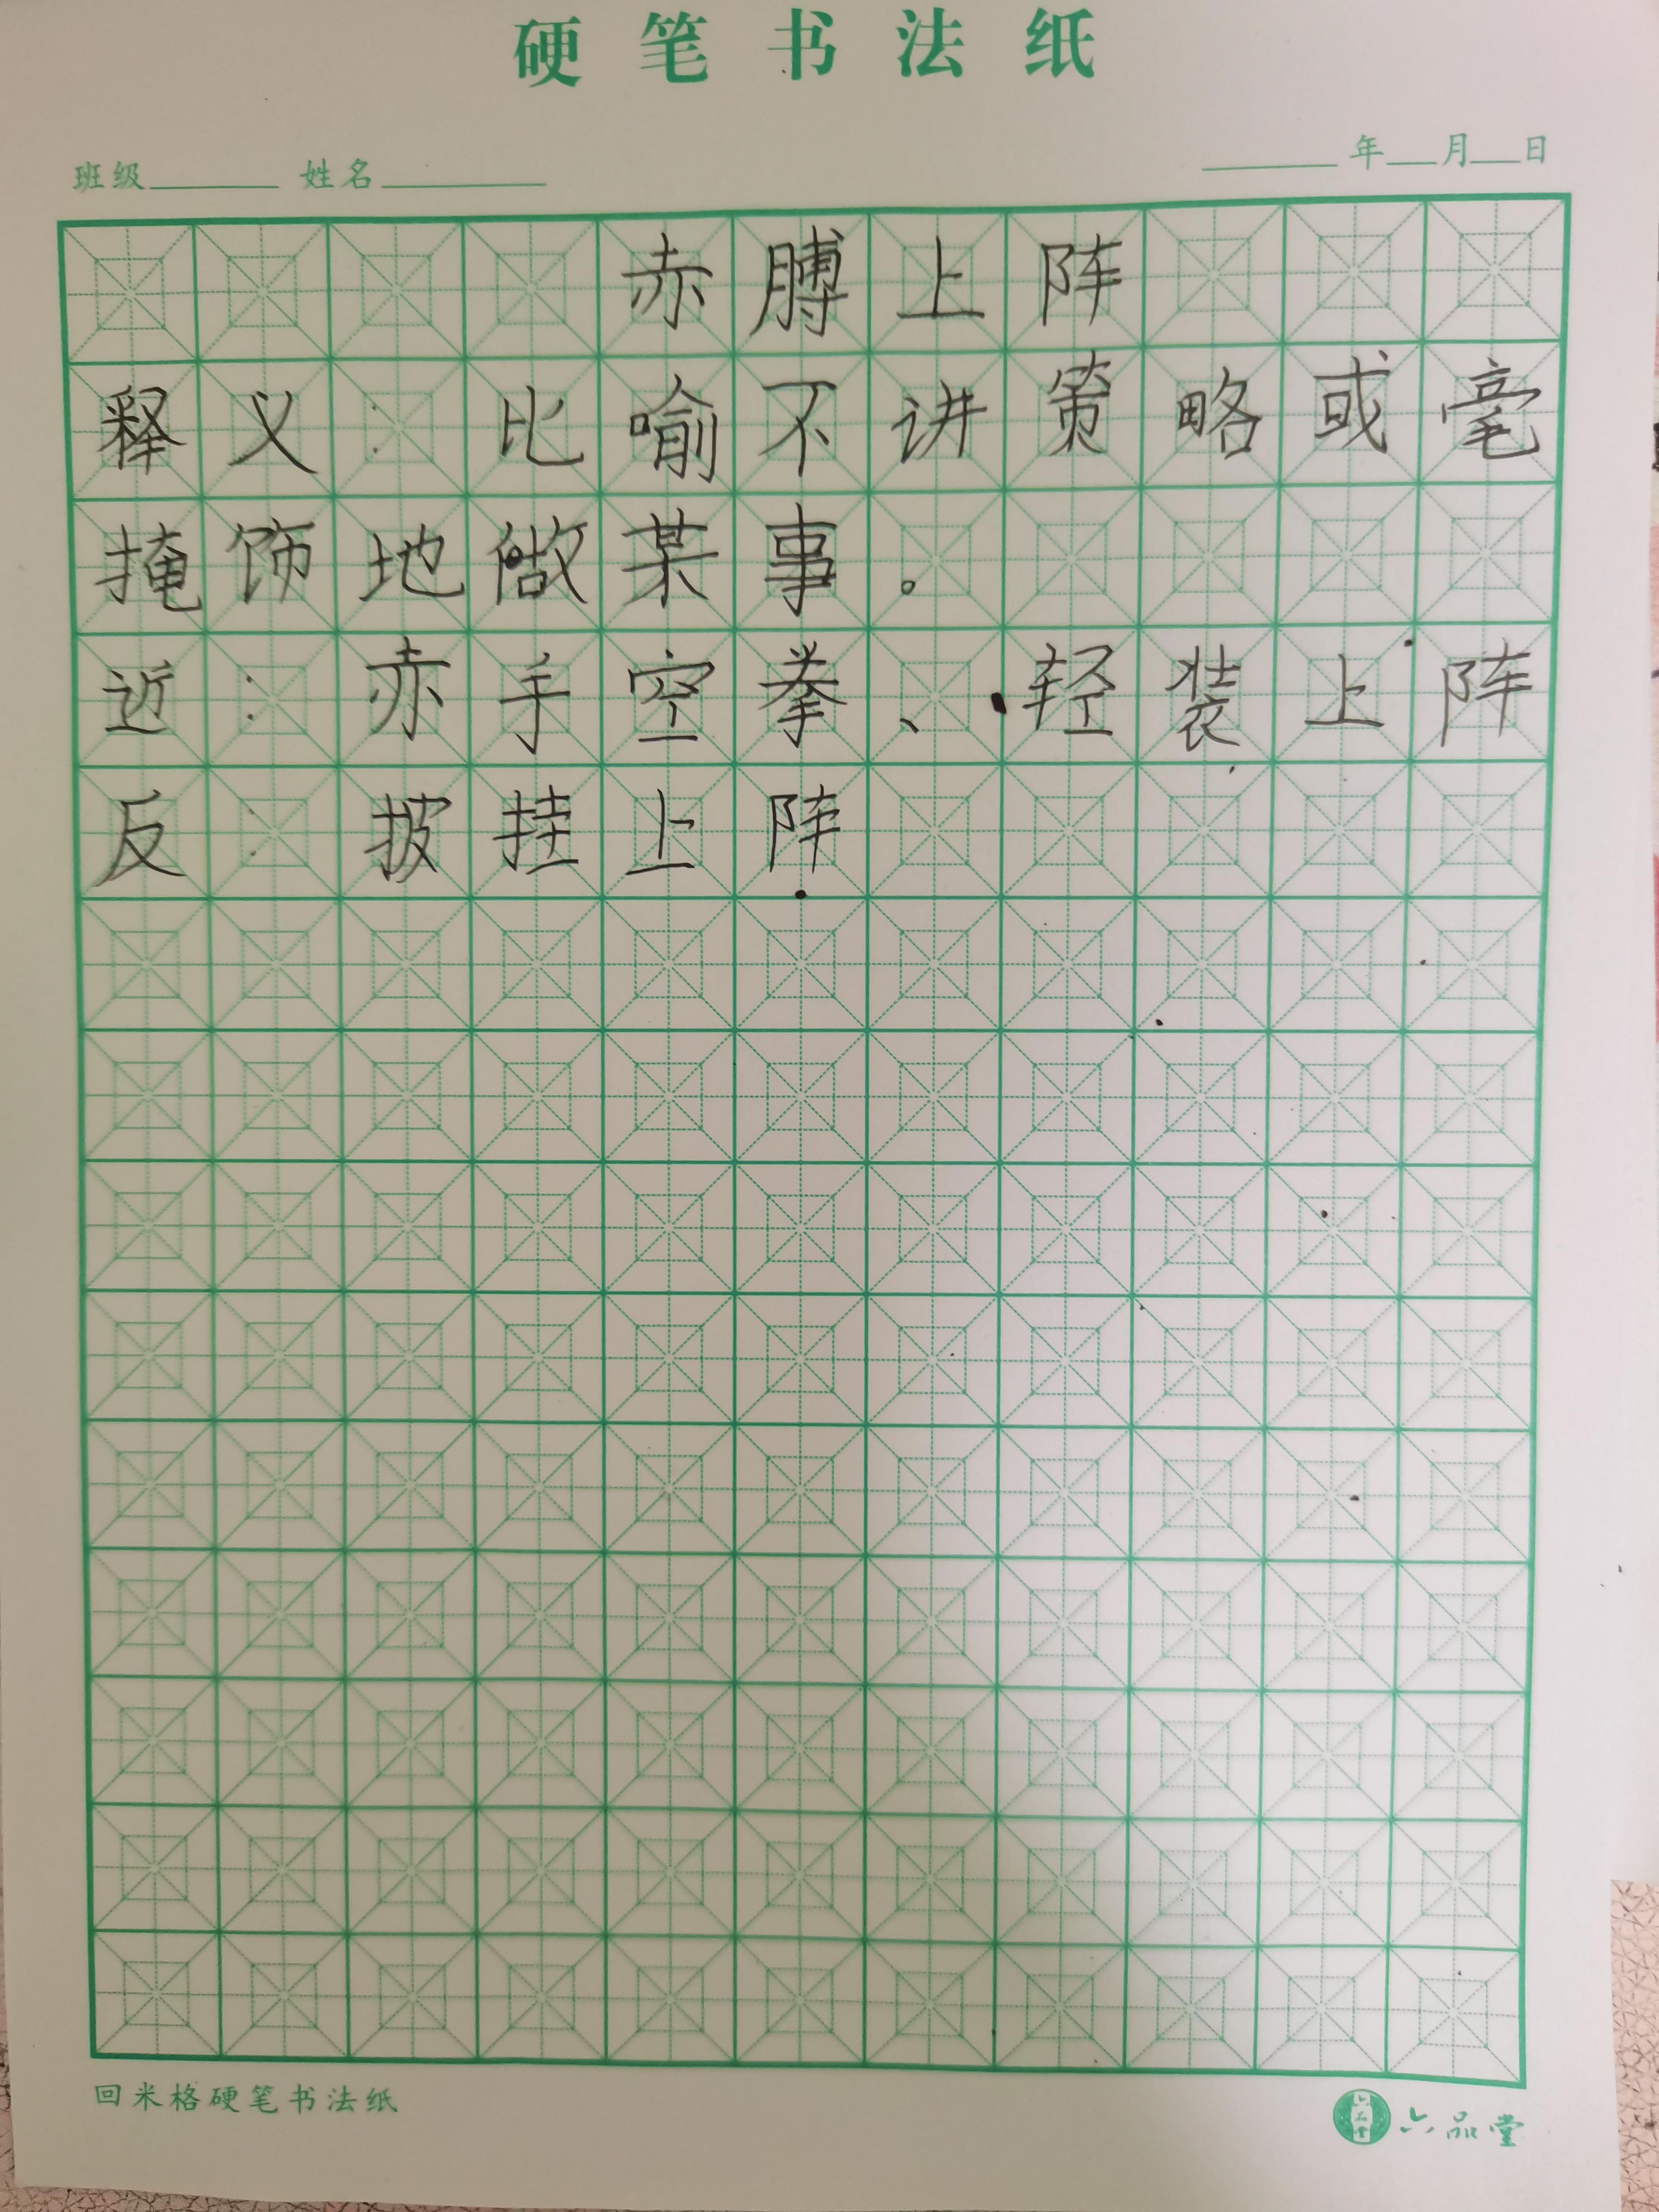 硬笔书法纸
班级 姓名 年 月 日
赤膊上阵
释义：比喻不讲策略或毫
掩饰地做某事。
近：赤手空拳、轻装上阵
反：披挂上阵
回米格硬笔书法纸
六品堂